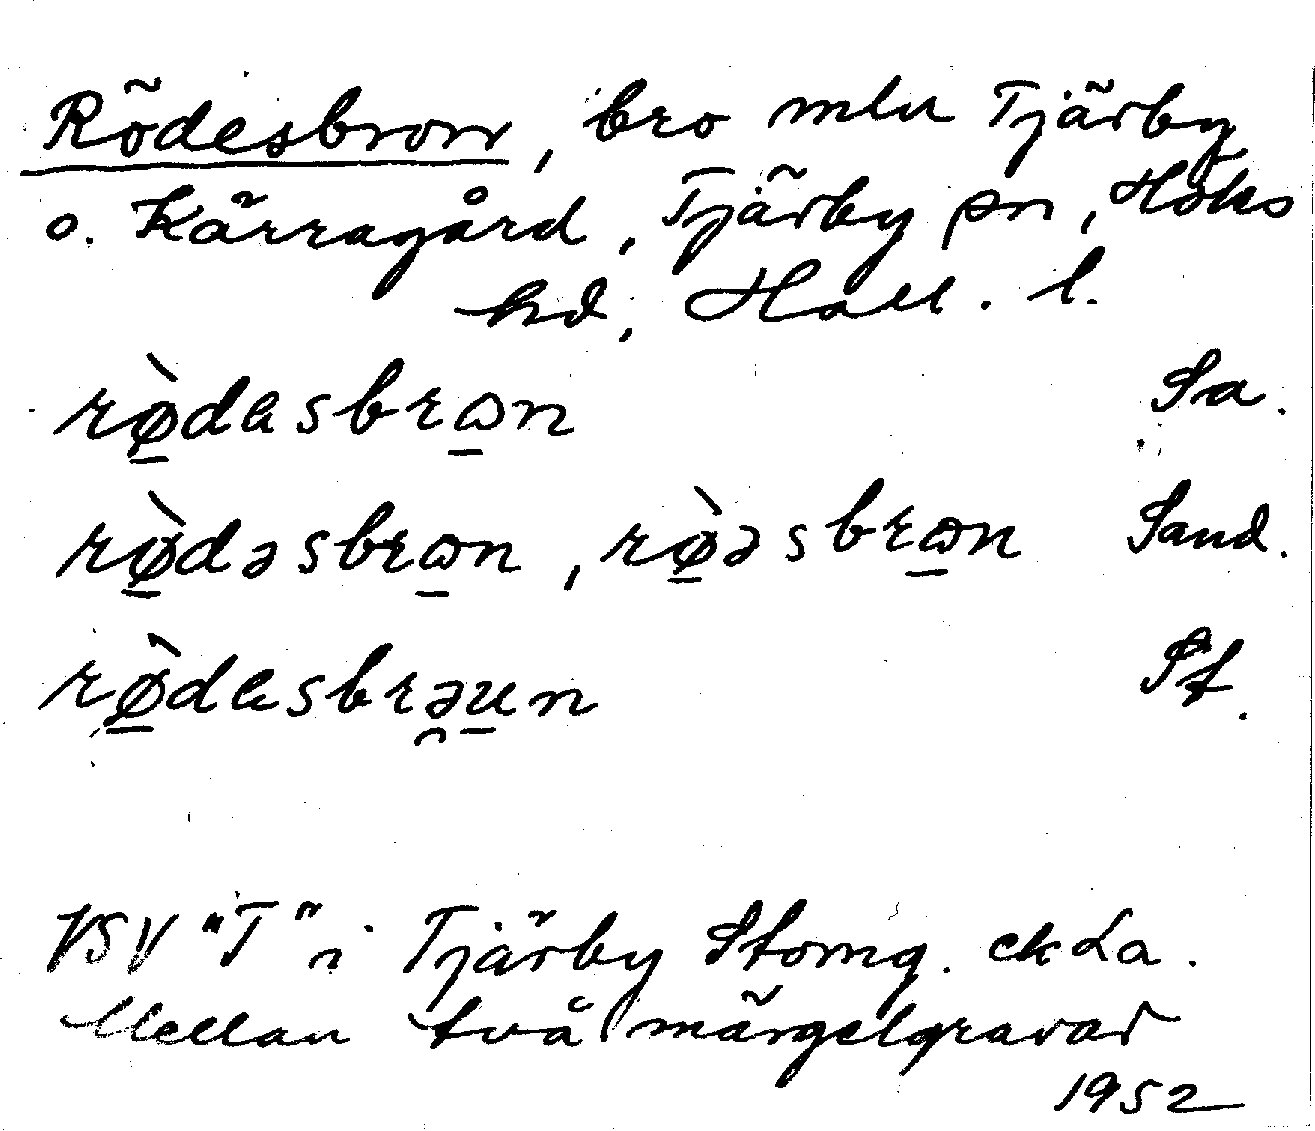 Rödesbron, bro mln Tjärby
o. Kärragård, Tjärby sn, Höks
hd, Hall. l.
rø̱̀dasbrɷ̱n Sa.
rø̱̀dəsbrɷ̱n, rø̱̀əsbrɷ̱n Sand.
rø̱̀dasbrə̯u̱n St.
VSV "T" i Tjärby Stomg. ek La.
Mellan två märgelgravar
1952